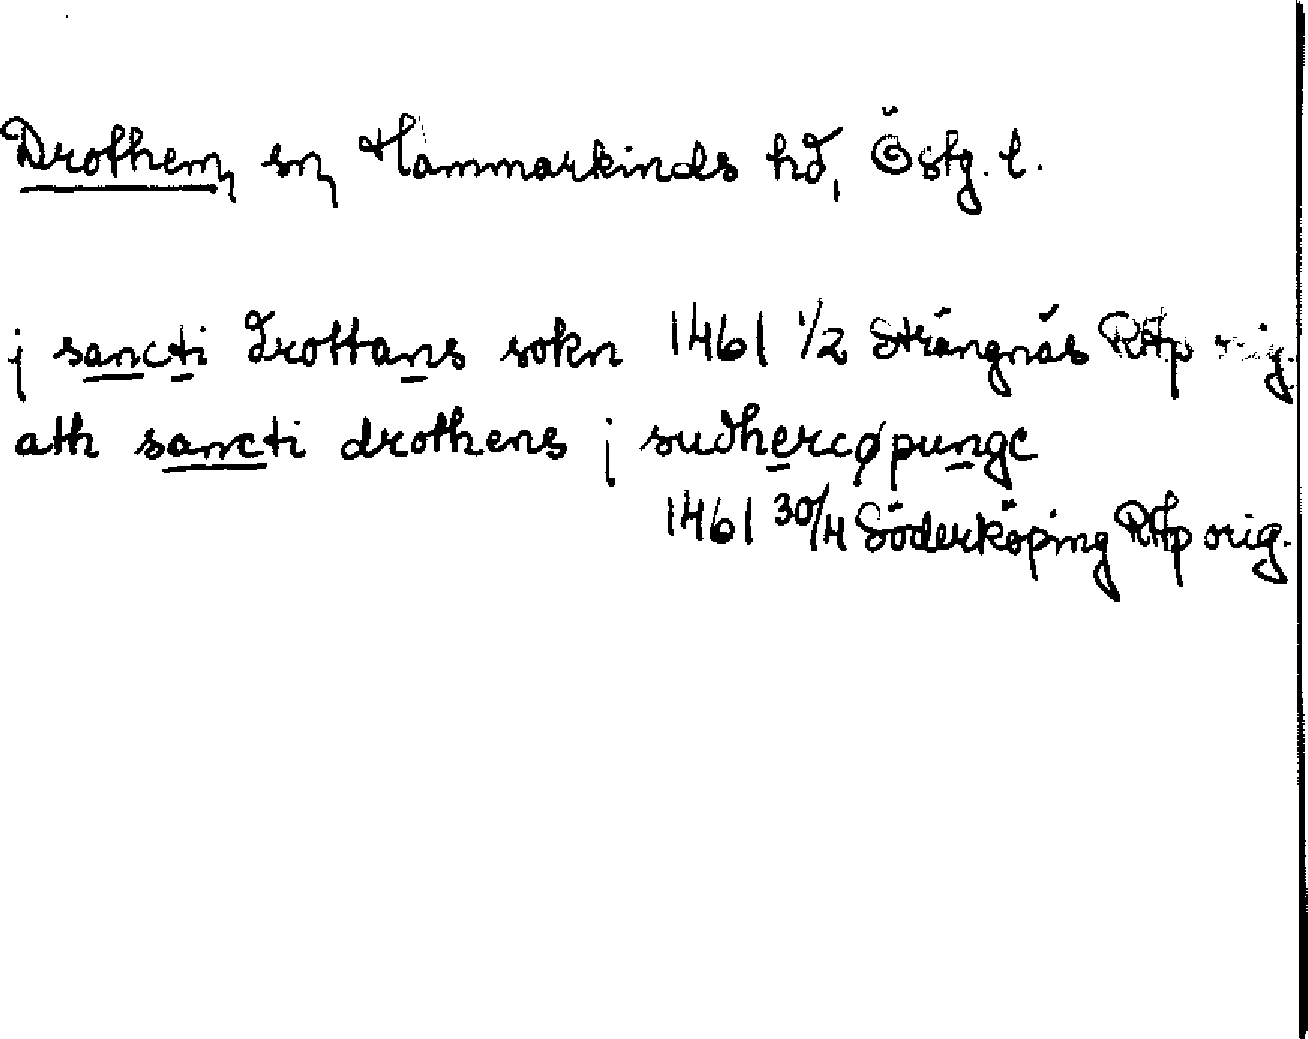 Drothem, sn, Hammarkinds hd, Östg. l.
j sancti Trottans sokn 1461 1/2 Strängnäs RAp orig.
ath sancti drothens j sudhercøpunge
1461 30/4 Söderköping RAp orig.